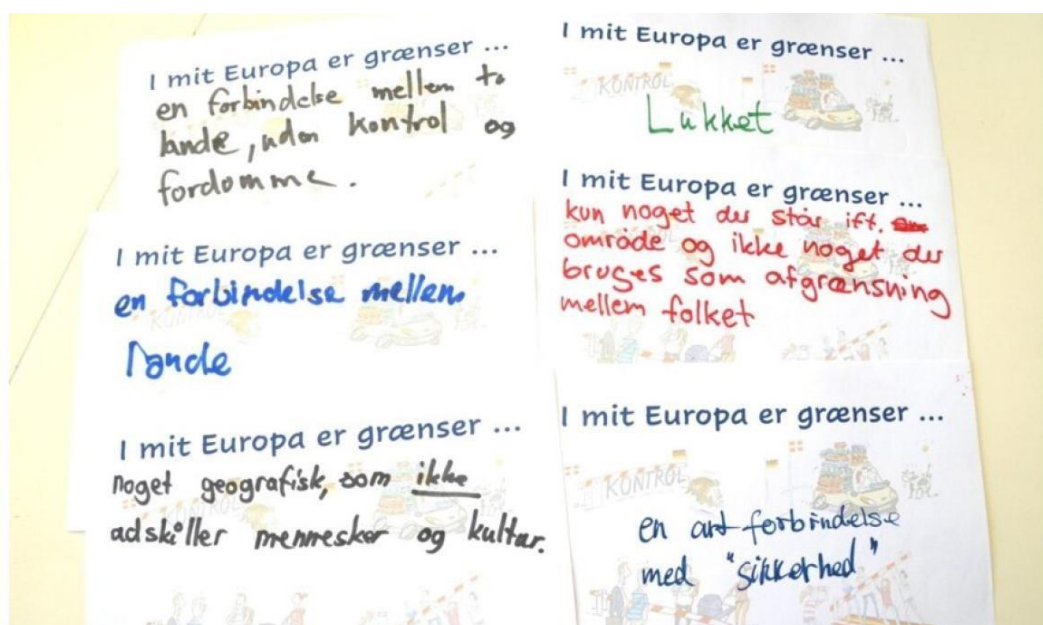 I mit Europa er grænser ...
en forbindelse mellem to
lande, uden kontrol og
fordomme.
I mit Europa er grænser ...
en forbindelse mellem
lande
I mit Europa er grænser ...
noget geografisk, som ikke
adskiller mennesker og kultur.
I mit Europa er grænser ...
KONTROL
Lukket
I mit Europa er grænser ...
kun noget der står ift.
område og ikke noget der
bruges som afgrænsning
mellem folket
I mit Europa er grænser ...
KONTROL
en art forbindelse
med "sikkerhed"